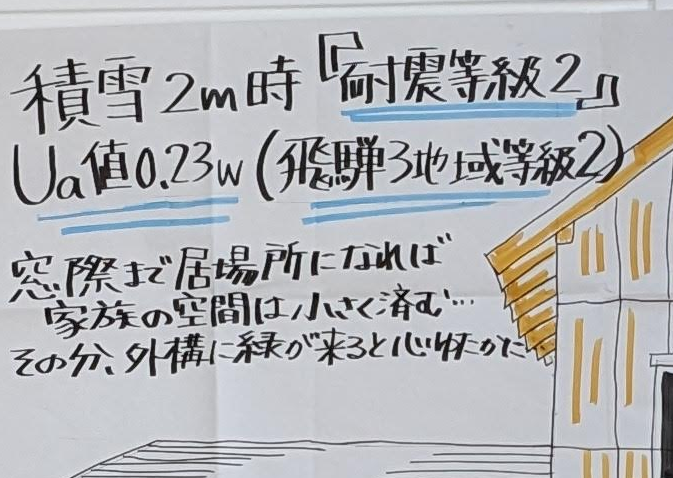 積雪2m時『耐震等級2』
Ua値0.23w(飛騨3地域等級2)
窓際まで居場所になれば
家族の空間は小さく済む…
その分、外構に緑が来ると心ゆたかに